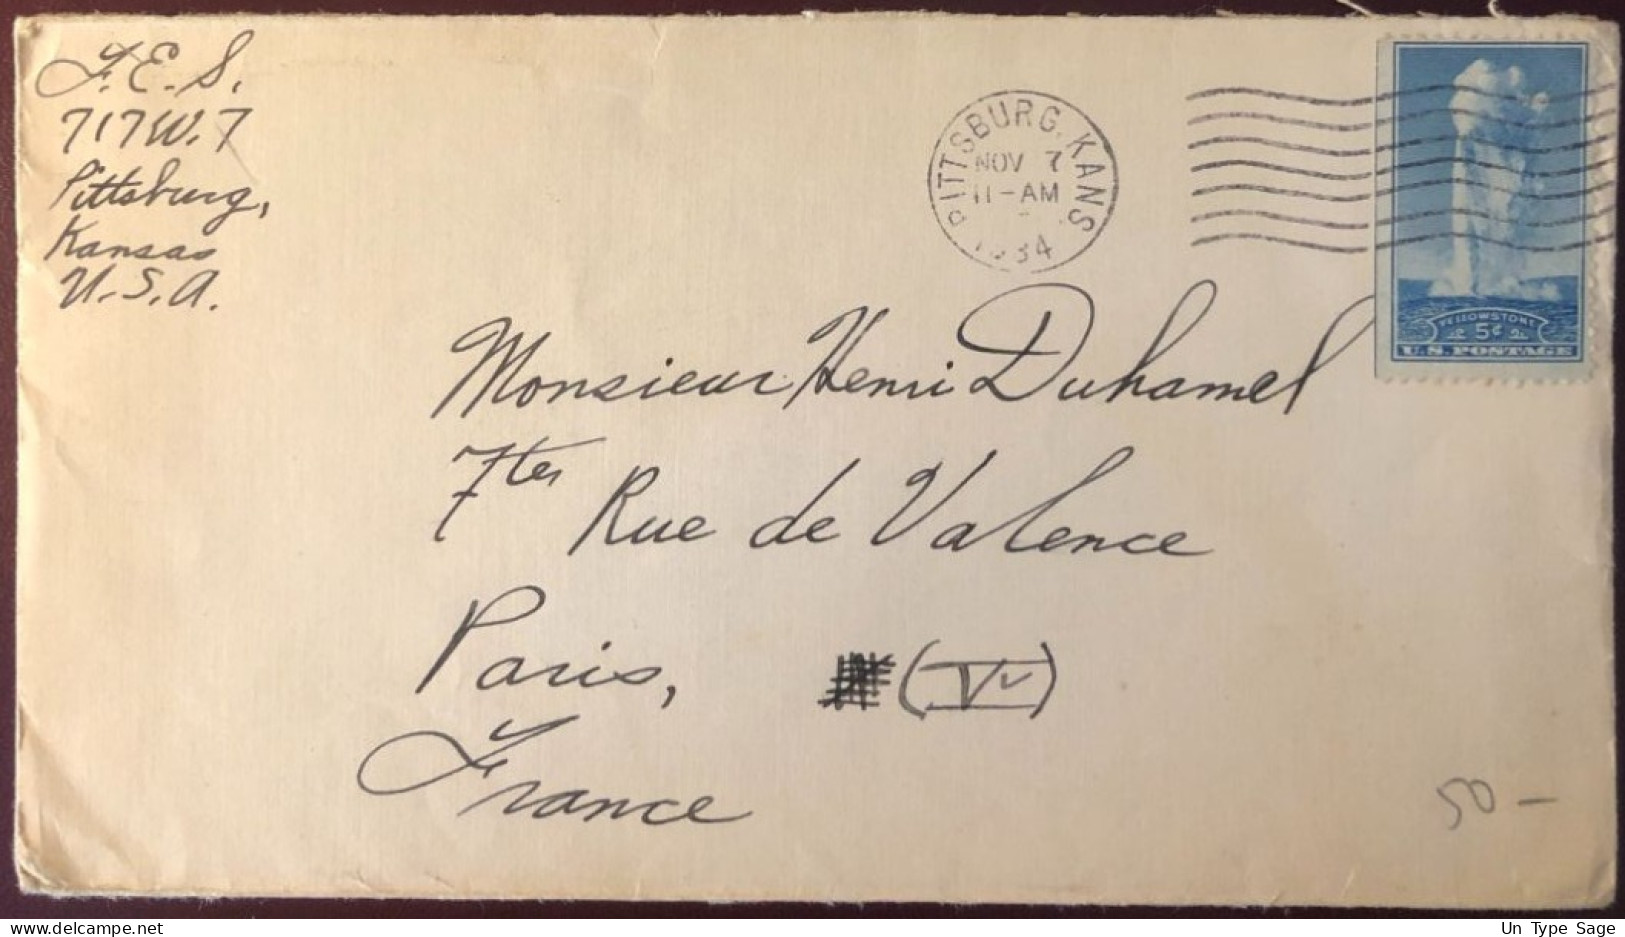 F. E. S.
717 W. 7
Pittsburg,
Kansas
U. S. A.
PITTSBURG, KANS.
NOV 7
11-AM
1934
YELLOWSTONE
5¢
U.S. POSTAGE
Monsieur Henri Duhamel
7ter Rue de Valence
Paris, (V)
France
50 -
Un Type Sage